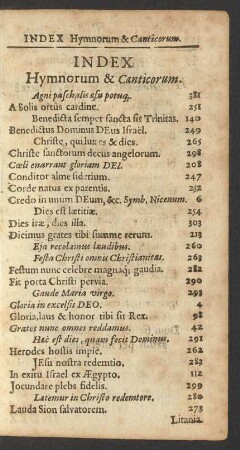 INDEX Hymnorum & Canticorum.
INDEX
Hymnorum & Canticorum.
Agni paschalis esu potuq; 381
A Solis ortus cardine. 251
Benedicta semper sancta sit Trinitas. 140
Benedictus Dominus DEus Israël. 249
Christe, qui lux es & dies. 265
Christe sanctorum decus angelorum. 298
Cœli enarrant gloriam DEI. 208
Conditor alme siderum. 247
Corde natus ex parentis. 252
Credo in unum DEum, &c. Symb. Nicenum. 6
Dies est lætitiæ. 254
Dies iræ, dies illa. 303
Dicimus grates tibi summe rerum. 213
Eja recolamus laudibus. 260
Festa Christi omnis Christianitas. 263
Festum nunc celebre magnaq; gaudia. 282
Fit porta Christi pervia. 290
Gaude Maria virgo. 293
Gloria in excelsis DEO. 4
Gloria, laus & honor tibi sit Rex. 98
Grates nunc omnes reddamus. 42
Hæc est dies, quam fecit Dominus. 291
Herodes hostis impie. 262
JEsu nostra redemtio. 283
In exitu Israel ex Ægypto. 112
Jocundare plebs fidelis. 299
Lætemur in Christo redemtore. 280
Lauda Sion salvatorem. 273
Litania